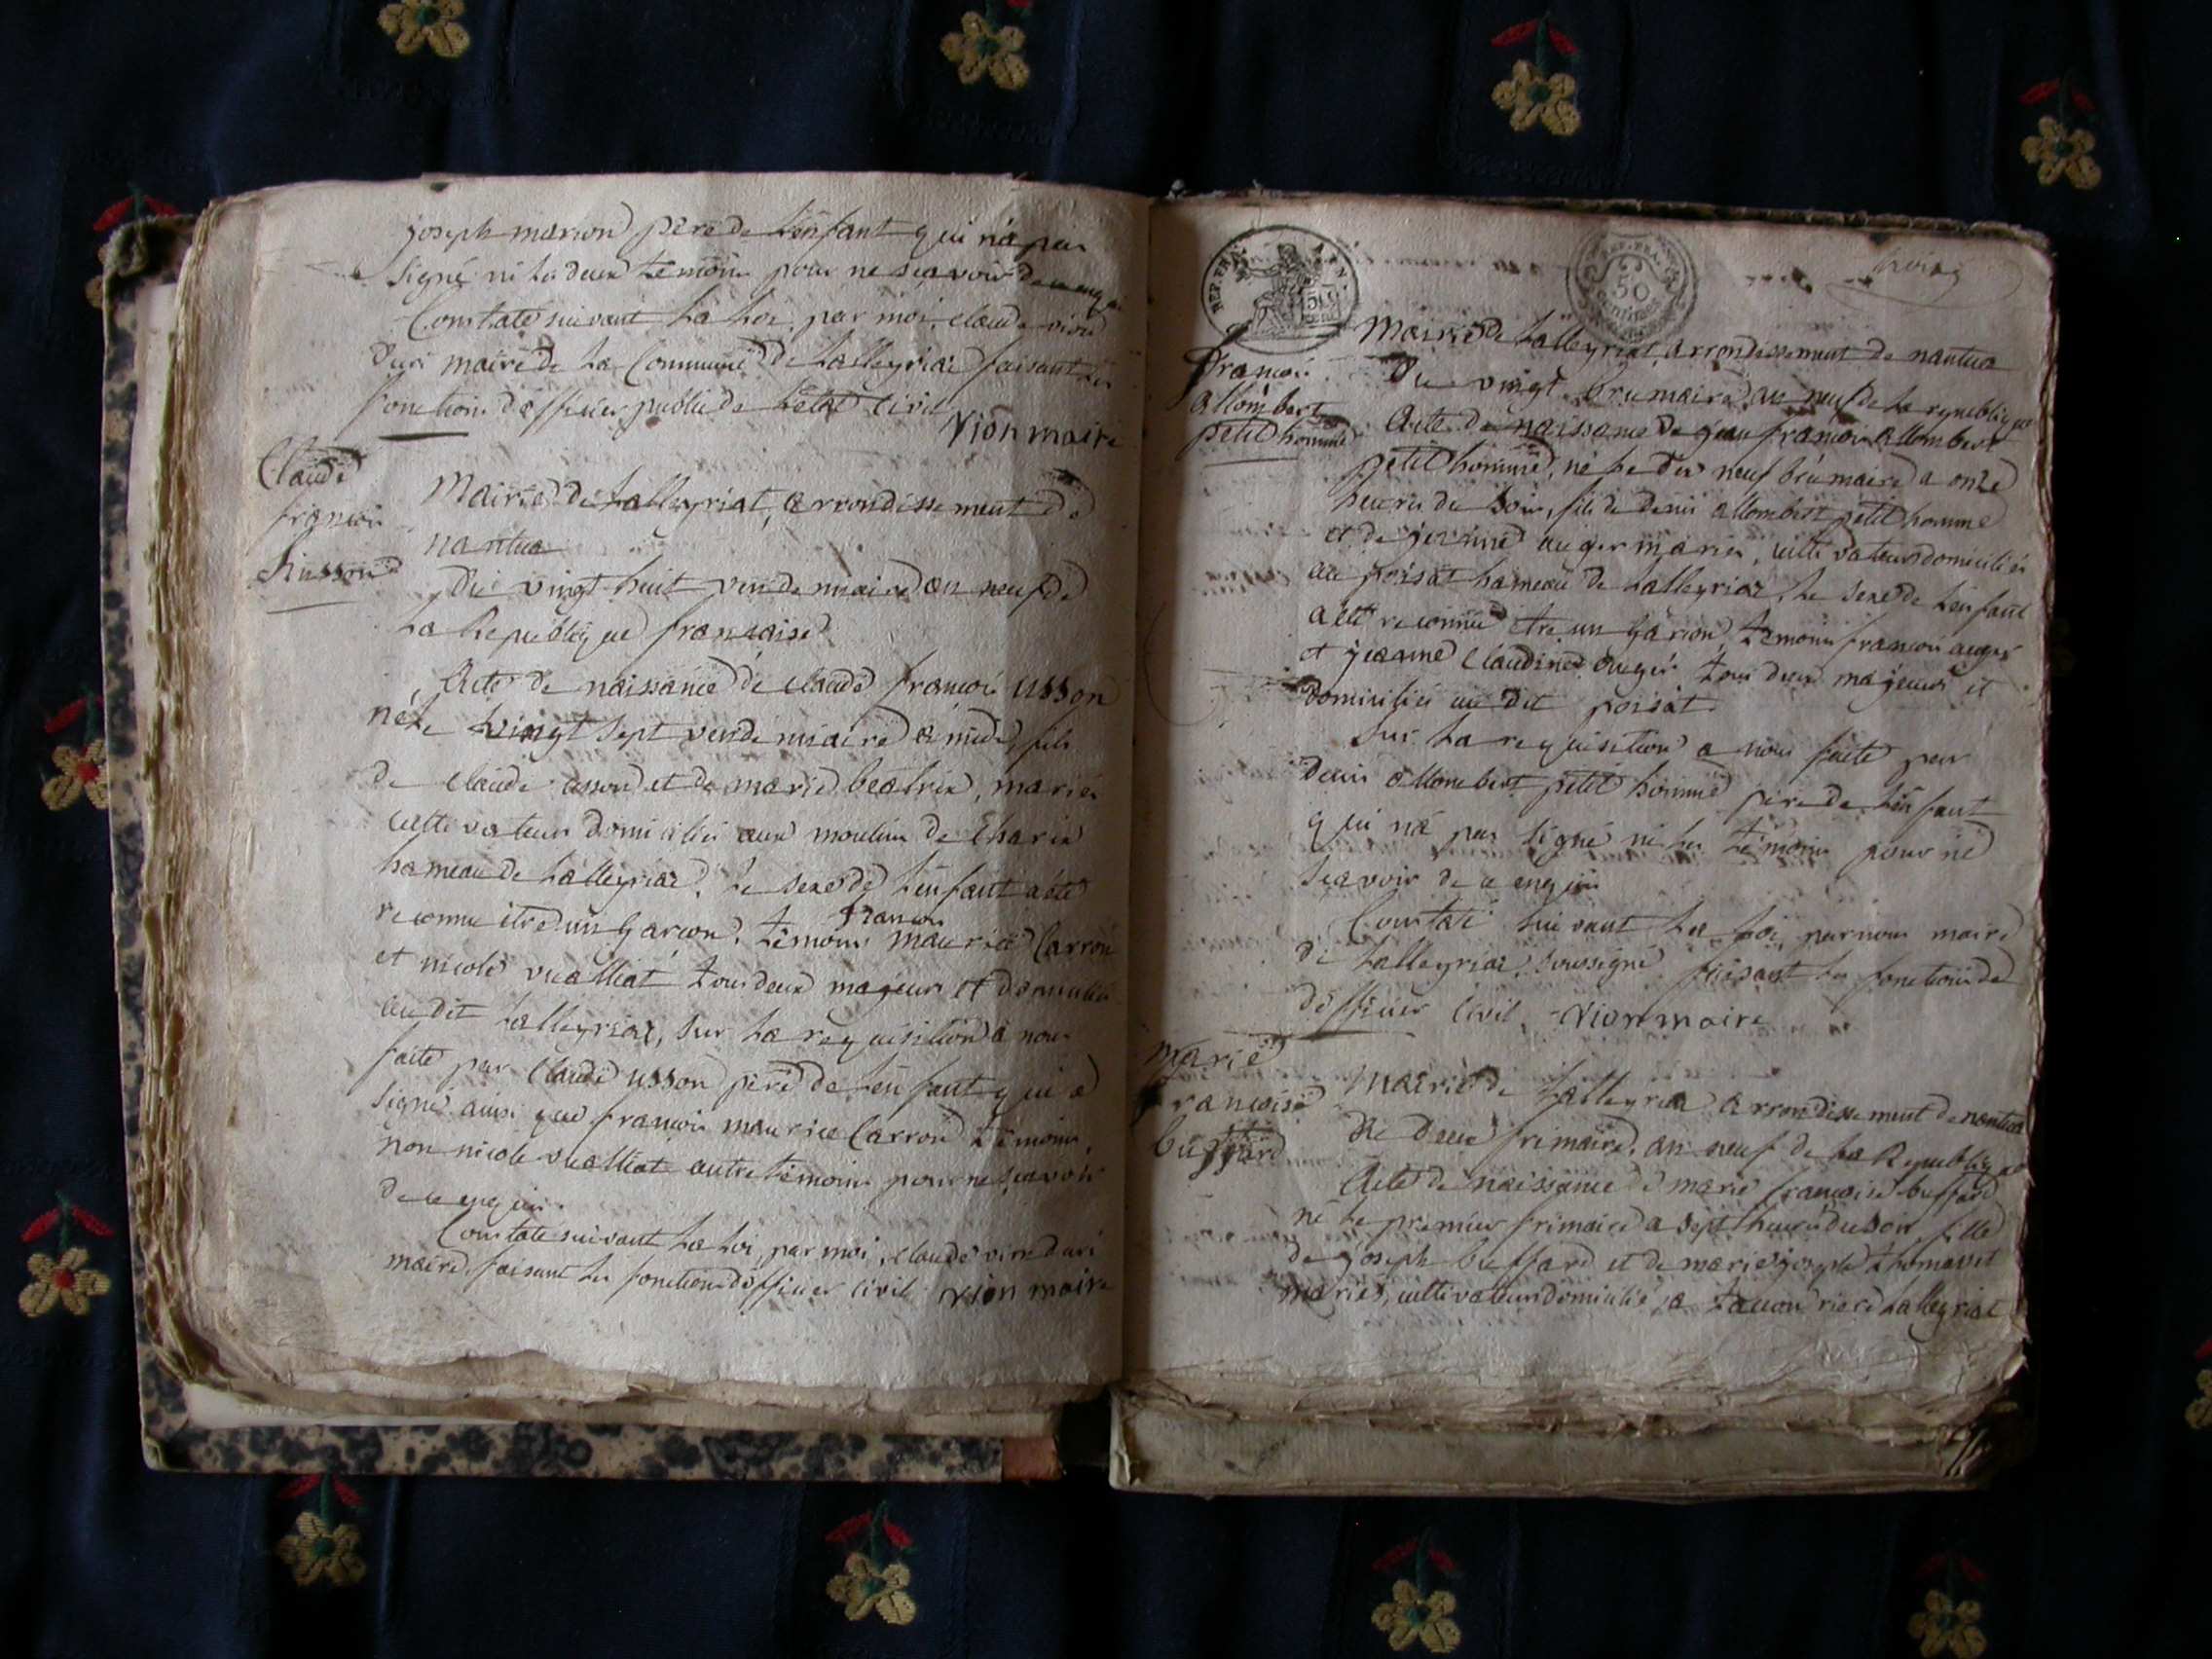 joseph marion pere de Lenfant qui na pas
signé ni Les deux temoins pour ne scavoir de ce enquis
Constaté suivant La Loi, par moi, claude vion
duri maire de La Commune de Lalleyriat faisant Les
fonctions dofficier public de Letat civil
vion maire
Claude
francois
husson
Mairie de Lalleyriat, arrondissement de
nantua
Du vingt huit vendemiaire an neuf de
La Republique francaise
Acte de naissance de claude francois usson
né Le vingt sept vendemiaire a midi, fils
de claude usson et de marie beatrix, mariés
cultivateurs domiciliés aux moulins de Charix
hameau de Lalleyriat, Le sexe de Lenfant a été
reconnu etre un garcon, temoins maurice Carron
francois
et nicole vualliat tous deux majeurs et domiciliés
au dit Lalleyriat, sur La requisition a nous
faite par claude usson pere de Lenfant qui a
signé ainsi que francois maurice Carron temoins,
non nicole vualliat autre temoins pour ne scavoir
de ce enquis
Constaté suivant La Loi, par moi, claude vion duri
maire, faisant Les fonctions dofficier civil vion maire
REP. FRA.
50
cent
REP. FRA.
50
centimes
francois
allombert
petit homme
Mairie de Lalleyriat, arrondissement de nantua
Du vingt brumaire, an neuf de La republique
Acte de naissance de jean francois allombert
petit homme, né Le dix neuf brumaire a onze
heures du soir, fils de denis allombert petit homme
et de jeanne auger mariés, cultivateurs domiciliés
au poisat hameau de Lalleyriat, Le sexe de Lenfant
a été reconnu etre un garcon, temoins francois auger
et jeanne claudine auger tous deux majeurs et
domiciliés au dit poisat.
Sur La requisition a nous faite par
denis allombert petit homme pere de Lenfant
qui na pas signé ni Les temoins pour ne
scavoir de ce enquis
Constaté suivant La Loi, par nous maire
de Lalleyriat, soussigné faisant Les fonctions de
dofficier civil, vion maire
marie
francoise
buffard
Mairie de Lalleyriat arrondissement de nantua
Du deux frimaire, an neuf de La Republique
Acte de naissance de marie francoise buffard
né Le premier frimaire a sept heures du soir, fille
de joseph buffard et de marie josephe thomasset
mariés, cultivateurs domiciliés a Tacon riere Lalleyriat